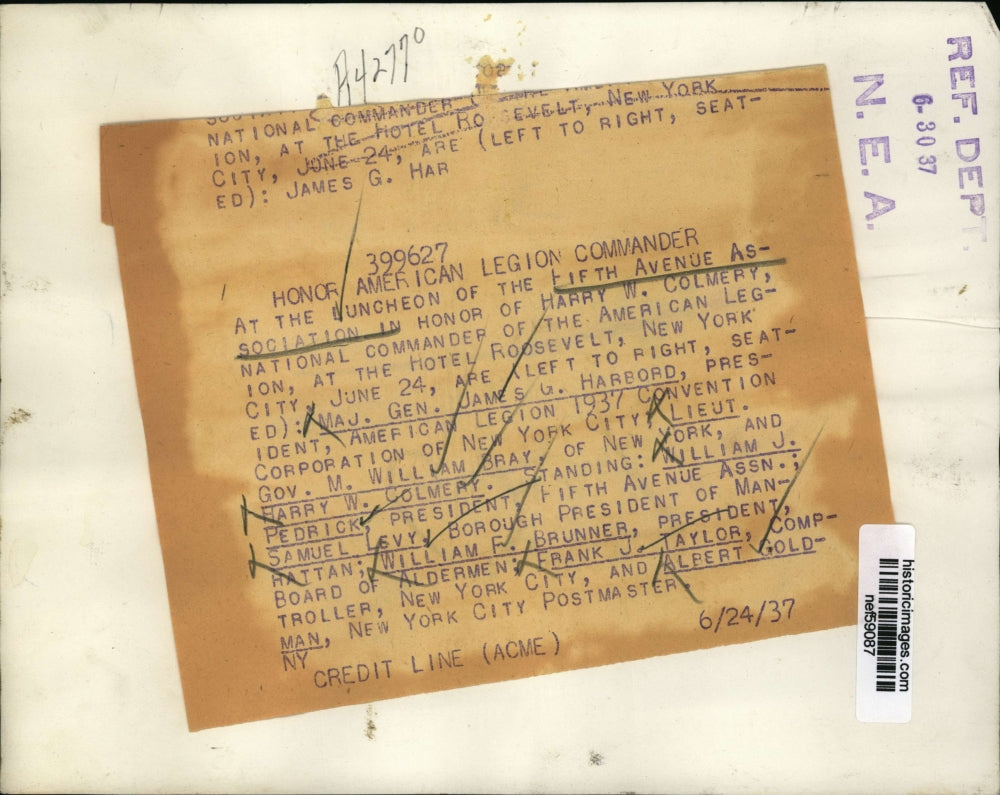 A42770
NATIONAL COMMANDER
ION, AT THE HOTEL ROOSEVELT, NEW YORK
CITY, JUNE 24, ARE (LEFT TO RIGHT, SEAT-
ED): JAMES G. HAR
399627
HONOR AMERICAN LEGION COMMANDER
AT THE LUNCHEON OF THE FIFTH AVENUE AS-
SOCIATION IN HONOR OF HARRY W. COLMERY,
NATIONAL COMMANDER OF THE AMERICAN LEG-
ION, AT THE HOTEL ROOSEVELT, NEW YORK
CITY, JUNE 24, ARE (LEFT TO RIGHT, SEAT-
ED): MAJ. GEN. JAMES G. HARBORD, PRES-
IDENT, AMERICAN LEGION 1937 CONVENTION
CORPORATION OF NEW YORK CITY; LIEUT.
GOV. M. WILLIAM BRAY, OF NEW YORK, AND
HARRY W. COLMERY. STANDING: WILLIAM J.
PEDRICK, PRESIDENT, FIFTH AVENUE ASSN.;
SAMUEL LEVY, BOROUGH PRESIDENT OF MAN-
HATTAN; WILLIAM F. BRUNNER, PRESIDENT,
BOARD OF ALDERMEN; FRANK J. TAYLOR, COMP-
TROLLER, NEW YORK CITY, AND ALBERT GOLD-
MAN, NEW YORK CITY POSTMASTER.
NY
CREDIT LINE (ACME)
6/24/37
REF. DEPT.
6-30 37
N. E. A.
historicimages.com
nef59087